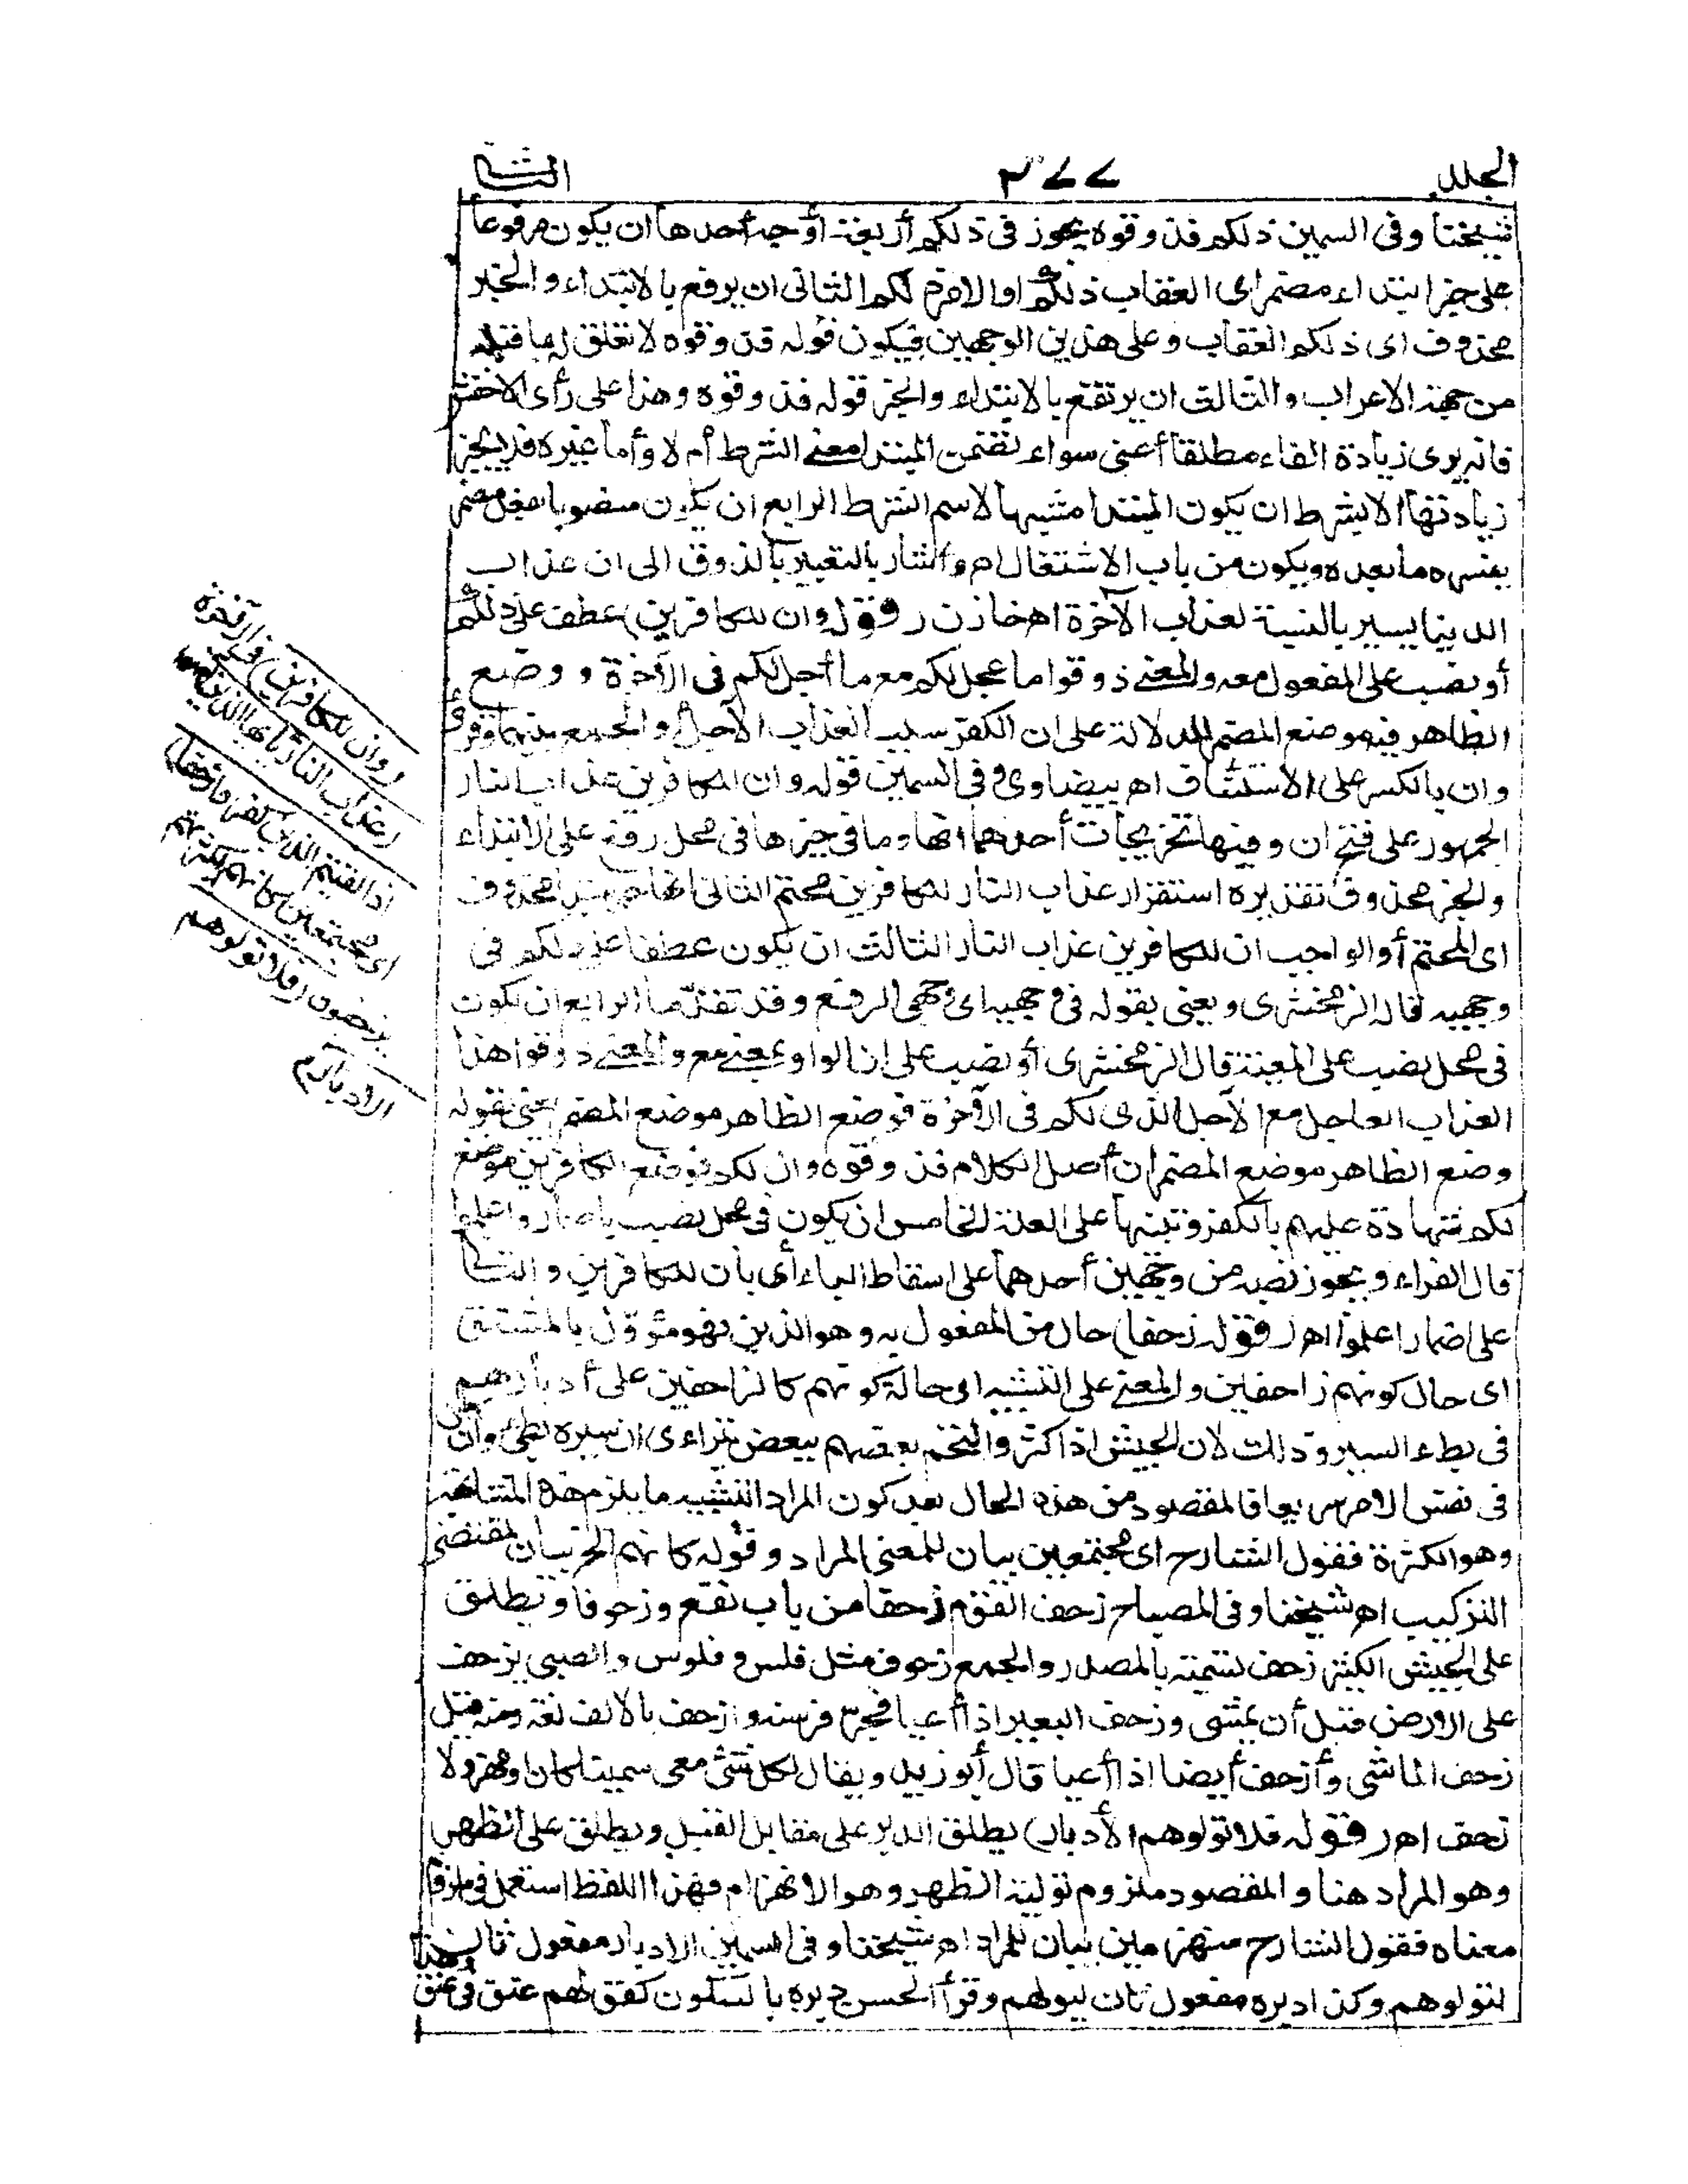 المجلد ٣٧٧ الثانى
شيخنا وفى السمين ذلكم فذوقوه يجوز فى ذلكم أربعة أوجه أحدها ان يكون مرفوعا
على خبر ابتداء مضمر اى العقاب ذلكم او الامر ذلكم الثانى ان يرفع بالابتداء والخبر
محذوف اى ذلكم العقاب وعلى هذين الوجهين فيكون قوله فذوقوه لا تعلق له بما قبله
من جهة الاعراب والثالث ان يرتفع بالابتداء والخبر قوله فذوقوه وهذا على رأى الاخفش
فانه يرى زيادة الفاء مطلقا أعنى سواء تضمن المبتدا معنى الشرط أم لا وأما غيره فلا يجيز
زيادتها الا بشرط ان يكون المبتدا مشبها لاسم الشرط الرابع ان يكون منصوبا بفعل مضمر
يفسره ما بعده ويكون من باب الاشتغال اه وأشار بالتعبير بالذوق الى ان عذاب
الدنيا يسير بالنسبة لعذاب الآخرة اه خازن (قوله وان للكافرين) عطف على ذلكم
أو نصب على المفعول معه والمعنى ذوقوا ما عجل لكم مع ما أجل لكم فى الآخرة ووضع
الظاهر فيه موضع المضمر للدلالة على ان الكفر سبب العذاب الآجل أو الجمع بينهما وقرئ
وان بالكسر على الاستئناف اه بيضاوى وفى السمين قوله وان للكافرين عذاب النار
الجمهور على فتح ان وفيها تخريجات أحدها انها وما فى حيزها فى محل رفع على الابتداء
والخبر محذوف تقديره استقرار عذاب النار للكافرين محتم الثانى انها خبر مبتدا محذوف
اى المحتم أو الواجب ان للكافرين عذاب النار الثالث ان يكون عطفا على ذلكم فى
وجهيه قاله الزمخشرى ويعنى بقوله فى وجهيه اى وجهى الرفع وقد تقدما الرابع ان يكون
فى محل نصب على المعية قال الزمخشرى أو نصب على ان الواو بمعنى مع والمعنى ذوقوا هذا
العذاب العاجل مع الآجل الذى لكم فى الآخرة فوضع الظاهر موضع المضمر يعنى بقوله
وضع الظاهر موضع المضمر ان أصل الكلام فذوقوه وان لكم فوضع الكافرين موضع
لكم شهادة عليهم بالكفر وتنبيها على العلة الخامس ان يكون فى محل نصب باضمار واعلموا
قال الفراء ويجوز نصبه من وجهين أحدهما على اسقاط الباء أى بان للكافرين والثانى
على اضمار اعلموا اه (قوله زحفا) حال من المفعول به وهو الذين فهو مؤول بالمشتق
اى حال كونهم زاحفين والمعنى على التشبيه اى حالة كونهم كالزاحفين على أدبارهم
فى بطء السير وذلك لان الجيش اذا كثر والتحم بعضهم ببعض يتراءى ان سيره بطئ وان كان
فى نفس الامر سريعا فالمقصود من هذه الحال بعد كون المراد التشبيه ما يلزم هذه المشابهة
وهو الكثرة فقول الشارح اى مجتمعين بيان للمعنى المراد وقوله كانهم الخ بيان لمقتضى
التركيب اه شيخنا وفى المصباح زحف القوم زحفا من باب نفع وزحوفا ويطلق
على الجيش الكثير زحف تسمية بالمصدر والجمع زحوف مثل فلس وفلوس والصبى يزحف
على الارض قبل أن يمشى وزحف البعير اذا أعيا فجر فرسنه وازحف بالالف لغة ومنه قيل
زحف الماشى وأزحف أيضا اذا أعيا قال أبو زيد ويقال لكل شئ معى سمينا كان او مهزولا
زحف اه (قوله فلا تولوهم الأدبار) يطلق الدبر على مقابل القبل ويطلق على الظهر
وهو المراد هنا والمقصود ملزوم تولية الظهر وهو الانهزام فهذا اللفظ استعمل فى ملزوم
معناه فقول الشارح منهزمين بيان للمراد اه شيخنا وفى السمين الادبار مفعول ثان
لتولوهم وكذا دبره مفعول ثان ليولهم وقرأ الحسن دبره بالسكون كقولهم عنق فى عنق
(وان للكافرين) فى الآخرة
(عذاب النار يا ايها الذين آمنوا
اذا لقيتم الذين كفروا زحفا)
اى مجتمعين كانهم لكثرتهم
يزحفون (فلا تولوهم
الادبار)